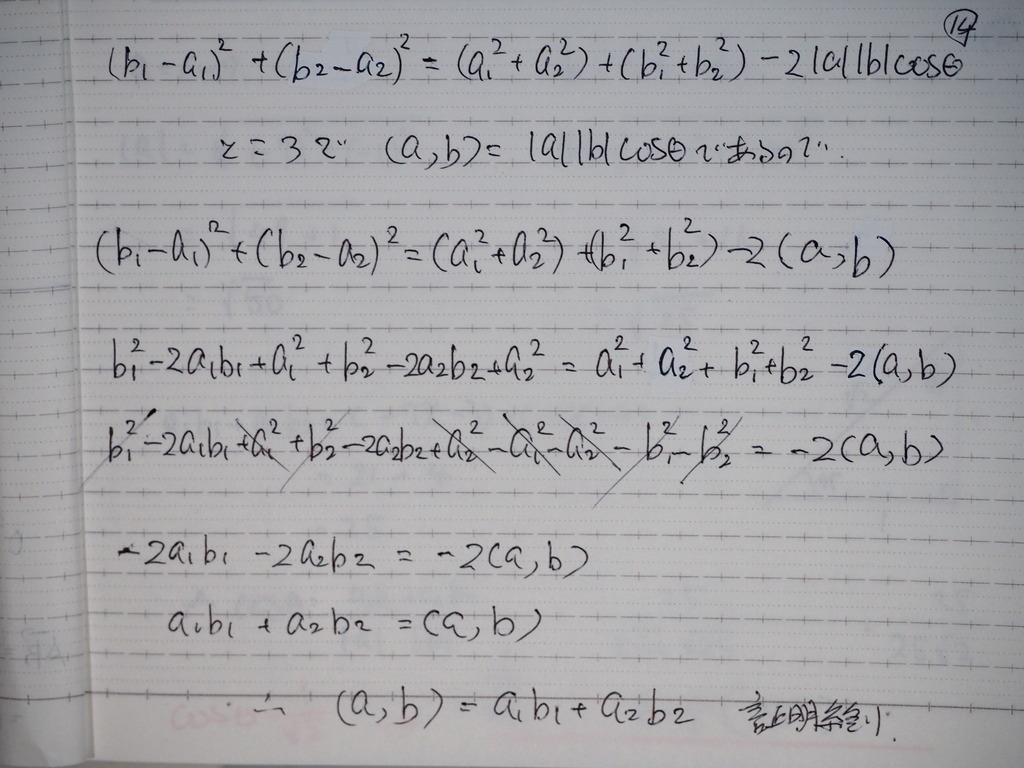 ⑭
(b₁-a₁)²+(b₂-a₂)²=(a₁²+a₂²)+(b₁²+b₂²)-2|a||b|cosθ
ここで (a,b)=|a||b|cosθであるので.
(b₁-a₁)²+(b₂-a₂)²=(a₁²+a₂²)+(b₁²+b₂²)-2(a,b)
b₁²-2a₁b₁+a₁²+b₂²-2a₂b₂+a₂²=a₁²+a₂²+b₁²+b₂²-2(a,b)
b₁²-2a₁b₁+a₁²+b₂²-2a₂b₂+a₂²-a₁²-a₂²-b₁²-b₂²=-2(a,b)
-2a₁b₁-2a₂b₂=-2(a,b)
a₁b₁+a₂b₂=(a,b)
∴ (a,b)=a₁b₁+a₂b₂ 証明終り.